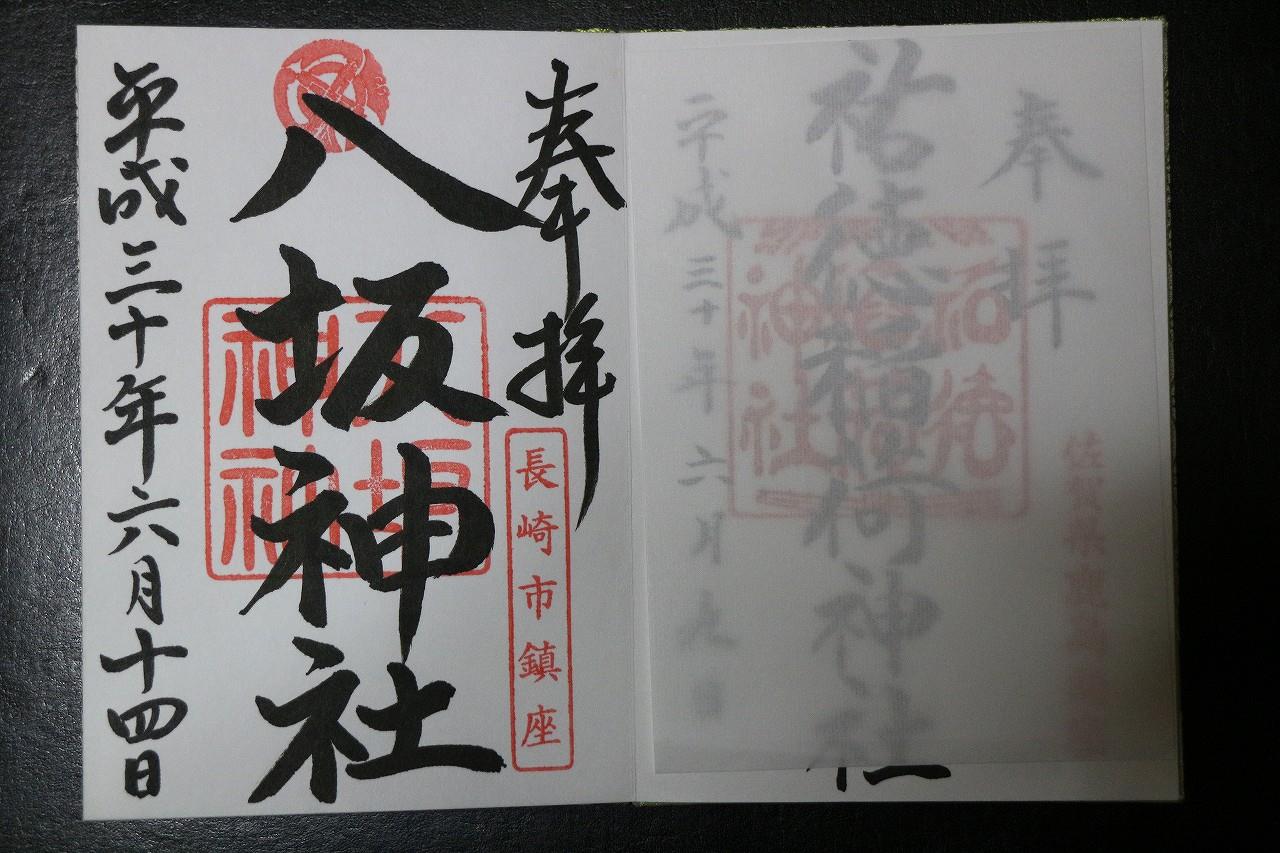 奉拝
佐賀県鹿島
祐徳稲荷神社
平成三十年六月九日
奉拝
長崎市鎮座
八坂神社
平成三十年六月十四日